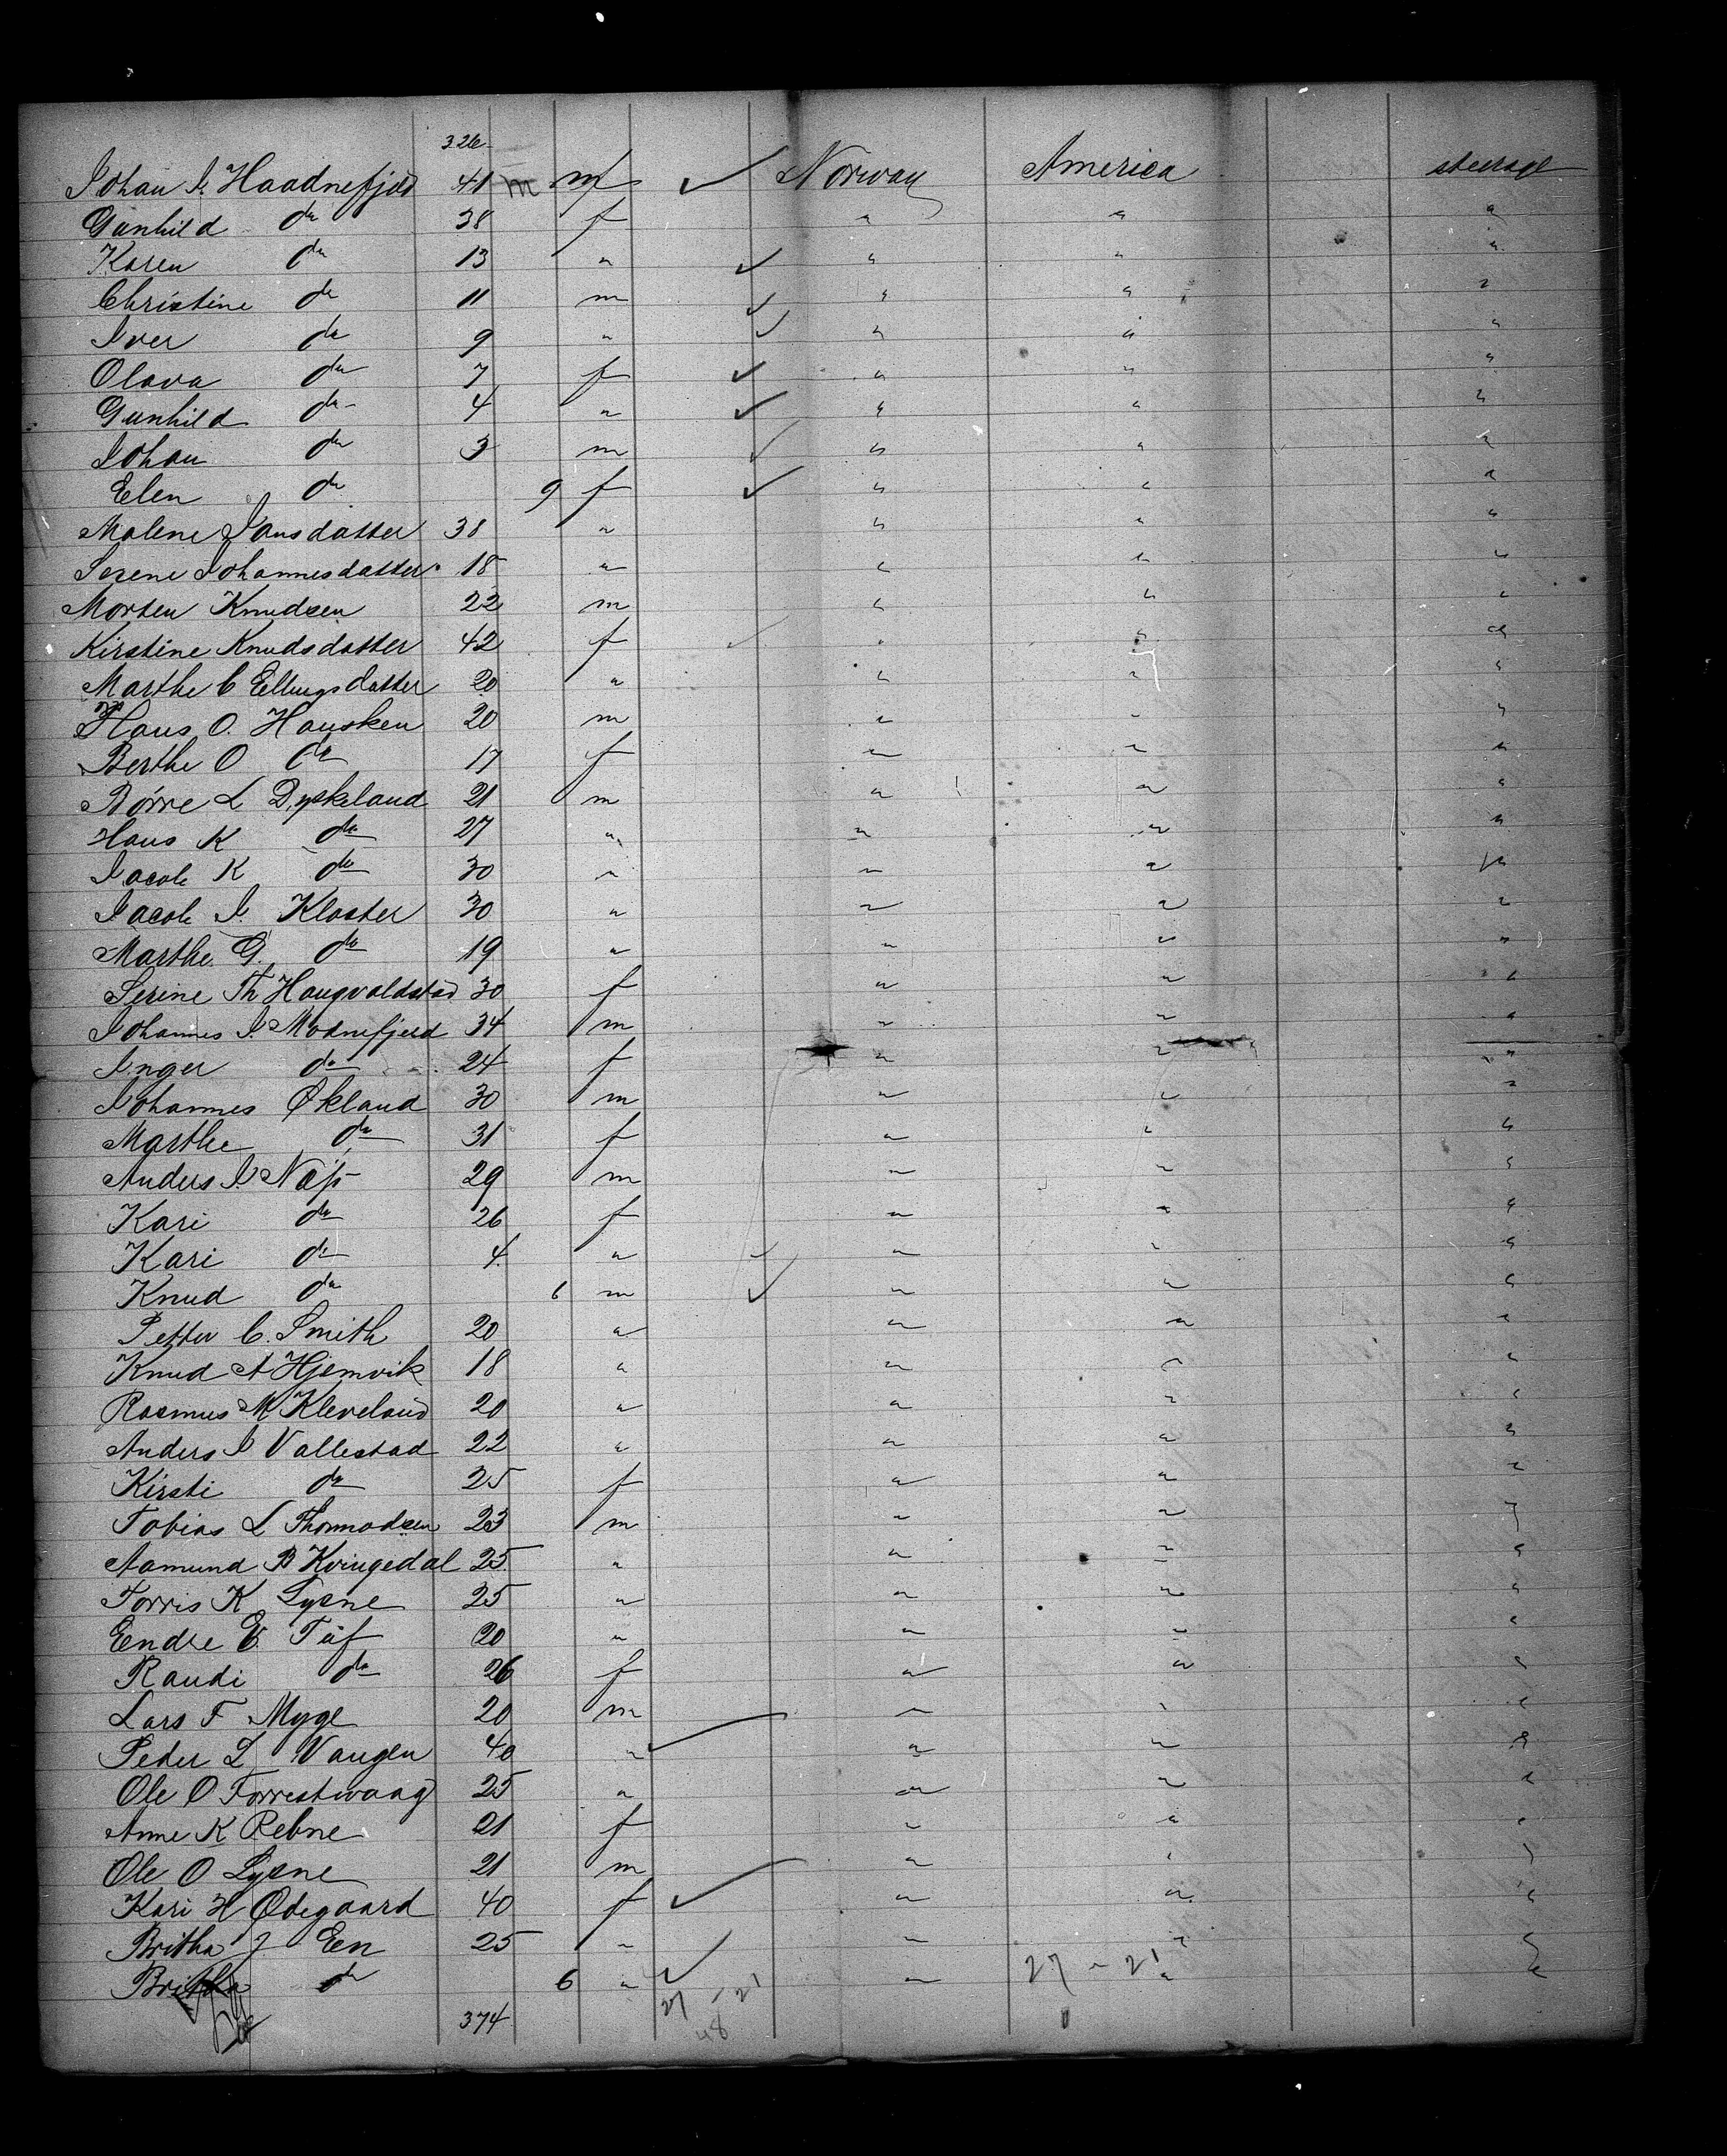 326
Johan I. Haadnefjeld 41 m m ✓ Norway America steerage
Gunhild do 38 f " " "
Karen do 13 " ✓ " " "
Christine do 11 m ✓ " " "
Iver do 9 " ✓ " " "
Olava do 7 f ✓ " " "
Gunhild do 4 " ✓ " " "
Johan do 3 m ✓ " " "
Elen do 9 f ✓ " " "
Malene Jansdatter 38 " " " "
Serene Johannesdatter 18 " " " "
Morten Knudsen 22 m " " "
Kirstine Knudsdatter 42 f ✓ " " "
Marthe C Ellingsdatter 20 " " " "
Hans O. Hausken 20 m " " "
Berthe O do 17 f " " "
Børre L Dyskeland 21 m " " "
Hans K do 27 " " " "
Jacob K do 30 " " " "
Jacob I. Kloster 30 " " " "
Marthe G. do 19 " " " "
Serine Th Haugvaldstad 30 f " " "
Johannes I. Modnefjeld 34 m " " "
Inger do 24 f " " "
Johannes Økland 30 m " " "
Marthe do 31 f " " "
Anders I. Næs 29 m " " "
Kari do 26 f " " "
Kari do 4 " ✓ " " "
Knud do 6 m ✓ " " "
Petter C. Smith 20 " " " "
Knud A Hjemvik 18 " " " "
Rasmus M Kleveland 20 " " " "
Anders I Vallestad 22 " " " "
Kirsti do 25 f " " "
Tobias L Thormodsen 23 m " " "
Aamund B Kvingedal 25 " " " "
Torris K Lysne 25 " " " "
Endre E. Tuf 20 " " " "
Randi do 26 f " " "
Lars F Mygl 20 m " " "
Peder L Vangen 40 " ✓ " " "
Ole O Torrestwaag 25 " " " "
Anne K Rebne 21 f " " "
Ole O Lysne 21 m " " "
Kari H Ødegaard 40 f ✓ " " "
Britha J Een 25 " " " "
Britha do 6 " ✓ " 27 - 21 " "
374 27 - 21
48